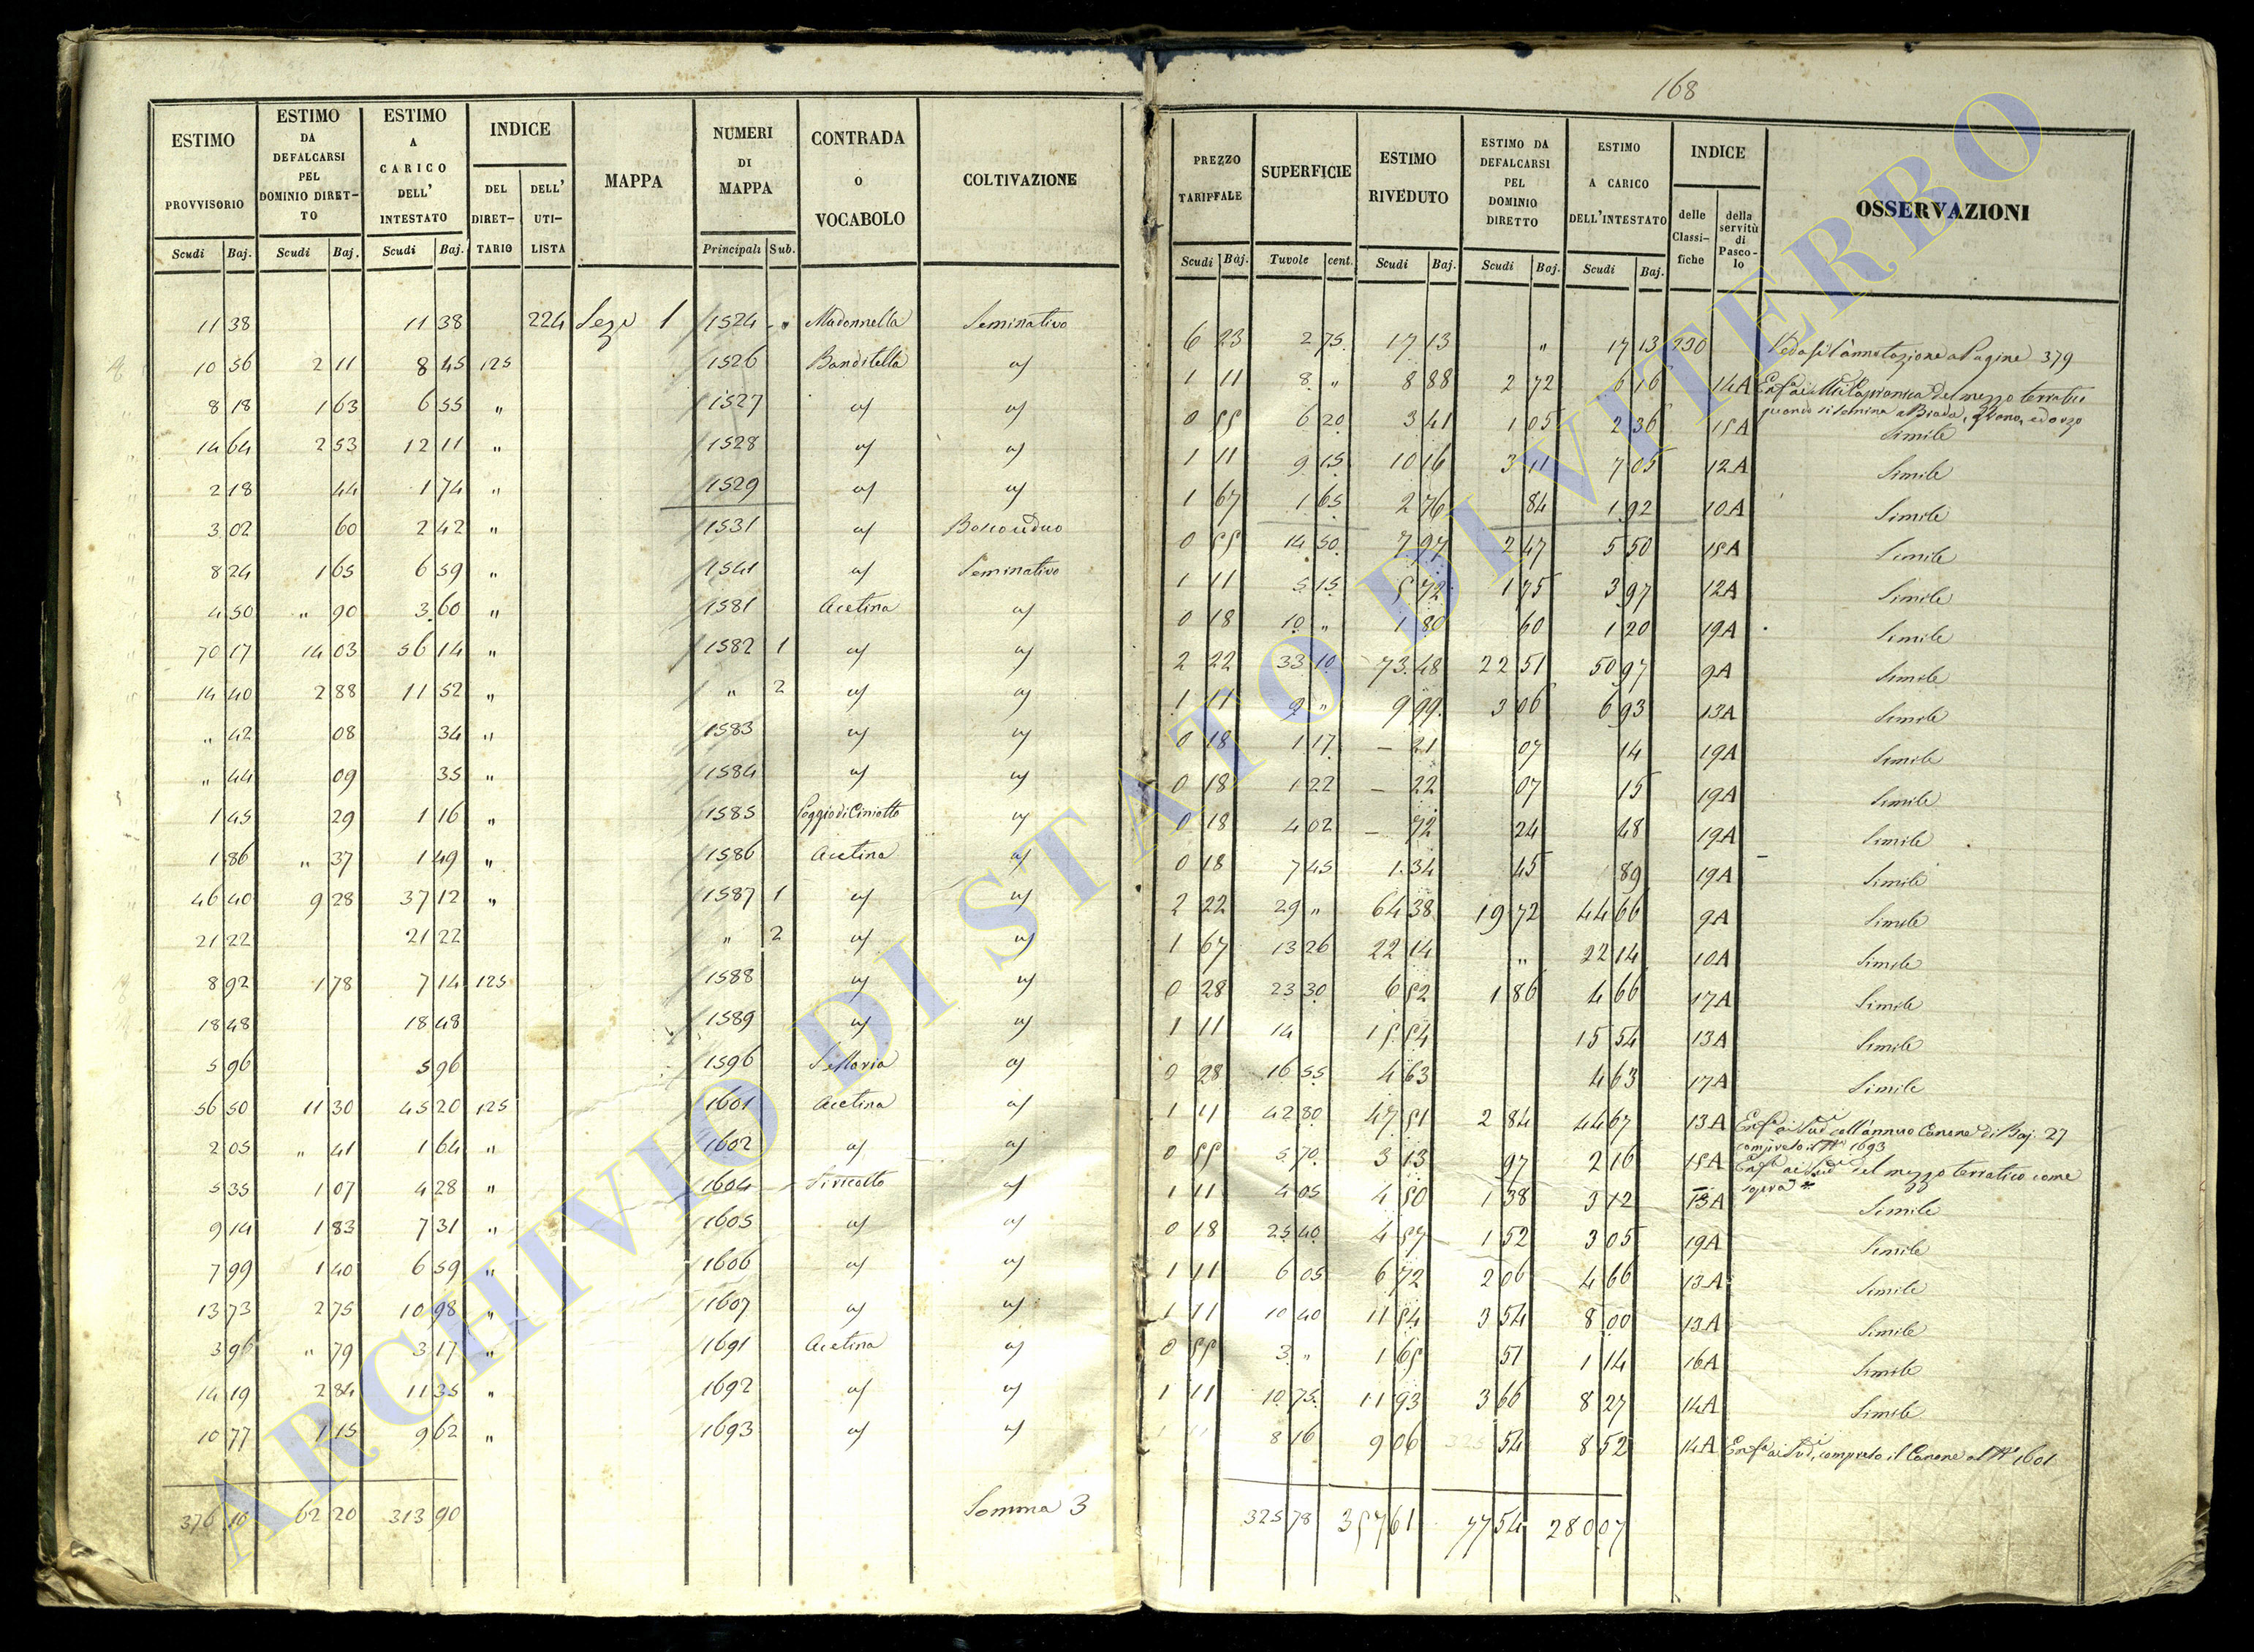 168
ESTIMO PROVVISORIO Scudi Baj.
ESTIMO DA DEFALCARSI PEL DOMINIO DIRET-TO Scudi Baj.
ESTIMO A CARICO DELL' INTESTATO Scudi Baj.
INDICE DEL DIRET-TARIO DELL' UTI-LISTA
MAPPA
NUMERI DI MAPPA Principali Sub.
CONTRADA O VOCABOLO
COLTIVAZIONE
PREZZO TARIFFALE Scudi Baj.
SUPERFICIE Tavole cent.
ESTIMO RIVEDUTO Scudi Baj.
ESTIMO DA DEFALCARSI PEL DOMINIO DIRETTO Scudi Baj.
ESTIMO A CARICO DELL'INTESTATO Scudi Baj.
INDICE delle Classi-fiche della servitù di Pasco-lo
OSSERVAZIONI
11 38 11 38 224 Sez. 1 1524 " Madonnella Seminativo 6 23 2 75 17 13 " 17 13 230 Vedasi l'annotazione a Pagine 379
10 56 2 11 8 45 125 1526 Banditella 1 11 8 " 8 88 2 72 6 16 14A del mezzo terratico
quando si semina a Biada, Grano, ed orzo
8 18 1 63 6 55 " 1527 0 55 6 20 3 41 1 05 2 36 15A Simile
14 64 2 53 12 11 " 1528 1 11 9 15 10 16 3 11 7 05 12A Simile
2 18 44 1 74 " 1529 1 67 1 65 2 76 84 1 92 10A Simile
3 02 60 2 42 " 1531 Bosco ceduo 0 55 14 50 7 97 2 47 5 50 15A Simile
8 24 1 65 6 59 " 1541 Seminativo 1 11 5 15 5 72 1 75 3 97 12A Simile
4 50 " 90 3 60 " 1581 Acetina 0 18 10 " 1 80 60 1 20 19A Simile
70 17 14 03 56 14 " 1582 1 2 22 33 10 73 48 22 51 50 97 9A Simile
14 40 2 88 11 52 " " 2 1 11 9 " 9 99 3 06 6 93 13A Simile
" 42 08 34 " 1583 0 18 1 17 - 21 07 14 19A Simile
" 44 09 35 " 1584 0 18 1 22 - 22 07 15 19A Simile
1 45 29 1 16 " 1585 Poggio di Ciniotto 0 18 4 02 - 72 24 48 19A Simile
1 86 " 37 1 49 " 1586 Acetina 0 18 7 45 1 34 45 89 19A Simile
46 40 9 28 37 12 " 1587 1 2 22 29 " 64 38 19 72 44 66 9A Simile
21 22 21 22 " 2 1 67 13 26 22 14 " 22 14 10A Simile
8 92 1 78 7 14 125 1588 0 28 23 30 6 52 1 86 4 66 17A Simile
18 48 18 48 1589 1 11 14 15 54 15 54 13A Simile
5 96 5 96 1596 0 28 16 55 4 63 4 63 17A Simile
56 50 11 30 45 20 125 1601 Acetina 1 11 42 80 47 51 2 84 44 67 13A coll'annuo Canone di Baj. 27
compreso il N° 1693
2 05 " 41 1 64 " 1602 0 55 5 70 3 13 97 2 16 15A del mezzo terratico come
sopra
5 35 1 07 4 28 " 1604 1 11 4 05 4 50 1 38 3 12 13A Simile
9 14 1 83 7 31 " 1605 0 18 25 40 4 57 1 52 3 05 19A Simile
7 99 1 40 6 59 " 1606 1 11 6 05 6 72 2 06 4 66 13A Simile
13 73 2 75 10 98 " 1607 1 11 10 40 11 54 3 54 8 00 13A Simile
3 96 " 79 3 17 " 1691 Acetina 0 55 3 " 1 65 51 1 14 16A Simile
14 19 2 84 11 35 " 1692 1 11 10 75 11 93 3 66 8 27 14A Simile
10 77 1 15 9 62 " 1693 1 11 8 16 9 06 54 8 52 14A compreso il Canone al N° 1601
376 10 62 20 313 90 Somma 3 325 78 357 61 77 54 280 07
ARCHIVIO DI STATO DI VITERBO